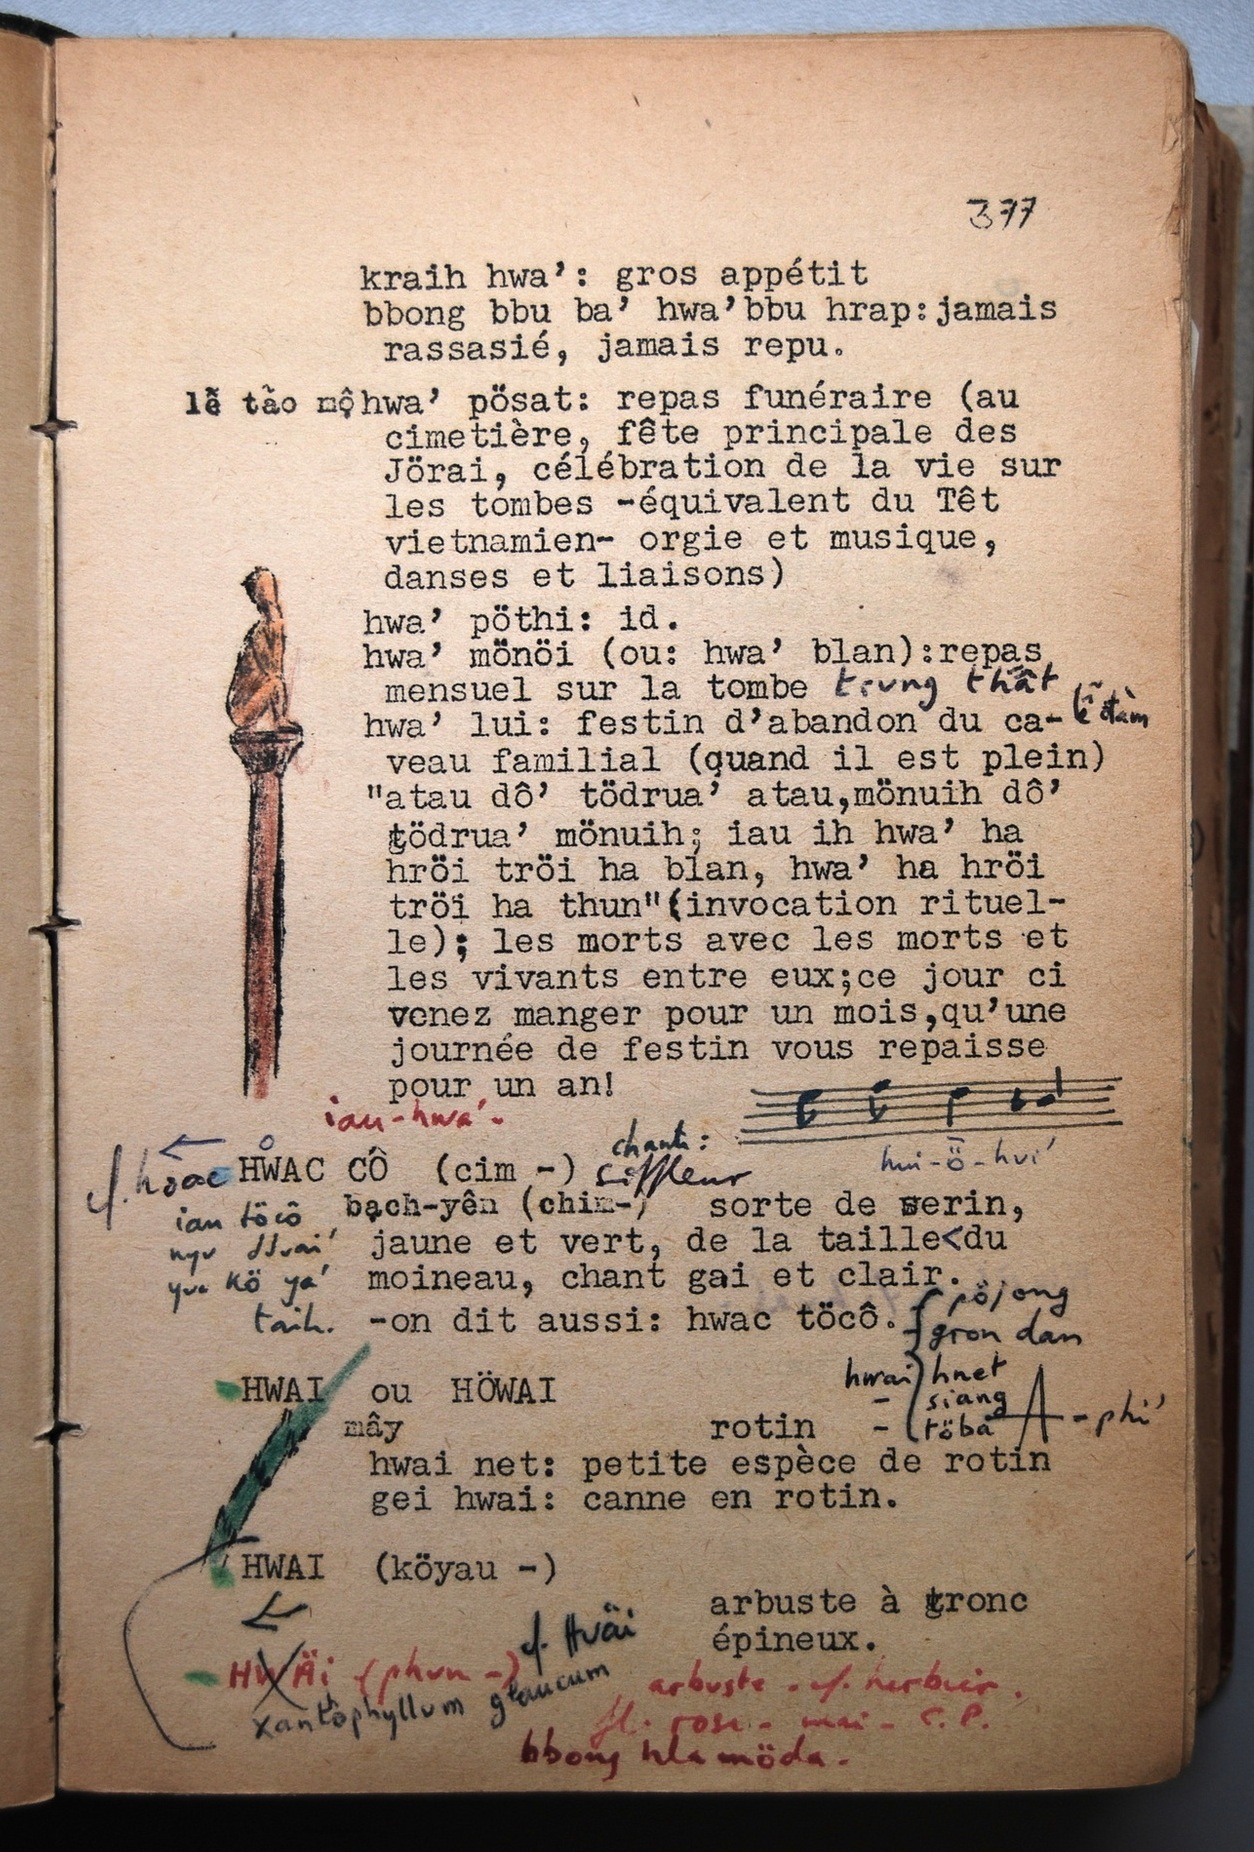 377
kraih hwa’: gros appétit
bbong bbu ba’ hwa’bbu hrap:jamais
rassasié, jamais repu.
lẽ tảo mộ hwa’ pösat: repas funéraire (au
cimetière, fête principale des
Jörai, célébration de la vie sur
les tombes -équivalent du Têt
vietnamien- orgie et musique,
danses et liaisons)
hwa’ pöthi: id.
hwa’ mönöi (ou: hwa’ blan):repas
mensuel sur la tombe trung thât
hwa’ lui: festin d’abandon du ca-
veau familial (quand il est plein)
"atau dô’ tödrua’ atau,mönuih dô’
tödrua’ mönuih; iau ih hwa’ ha
hröi tröi ha blan, hwa’ ha hröi
tröi ha thun"(invocation rituel-
le); les morts avec les morts et
les vivants entre eux;ce jour ci
venez manger pour un mois,qu’une
journée de festin vous repaisse
pour un an!
iau-hwa’.
hwi-ö-hvi’
HWAC CÔ (cim -) chante: siffleur
bạch-yên (chim-) sorte de serin,
ian töcô
jaune et vert, de la taille<du
moineau, chant gai et clair.
yua kö ya’
taih. -on dit aussi: hwac töcô. { pöjong
gron dan
HWAI ou HÖWAI hwai hnet
- siang
mây rotin - töba - phi’
hwai net: petite espèce de rotin
gei hwai: canne en rotin.
HWAI (köyau -)
arbuste à tronc
épineux.
cf. Hväi
HWÄi (phun -) arbuste. cf. herbier.
xantophyllum glaucum
fl. rose - mai - C.P.
bbong hla möda.